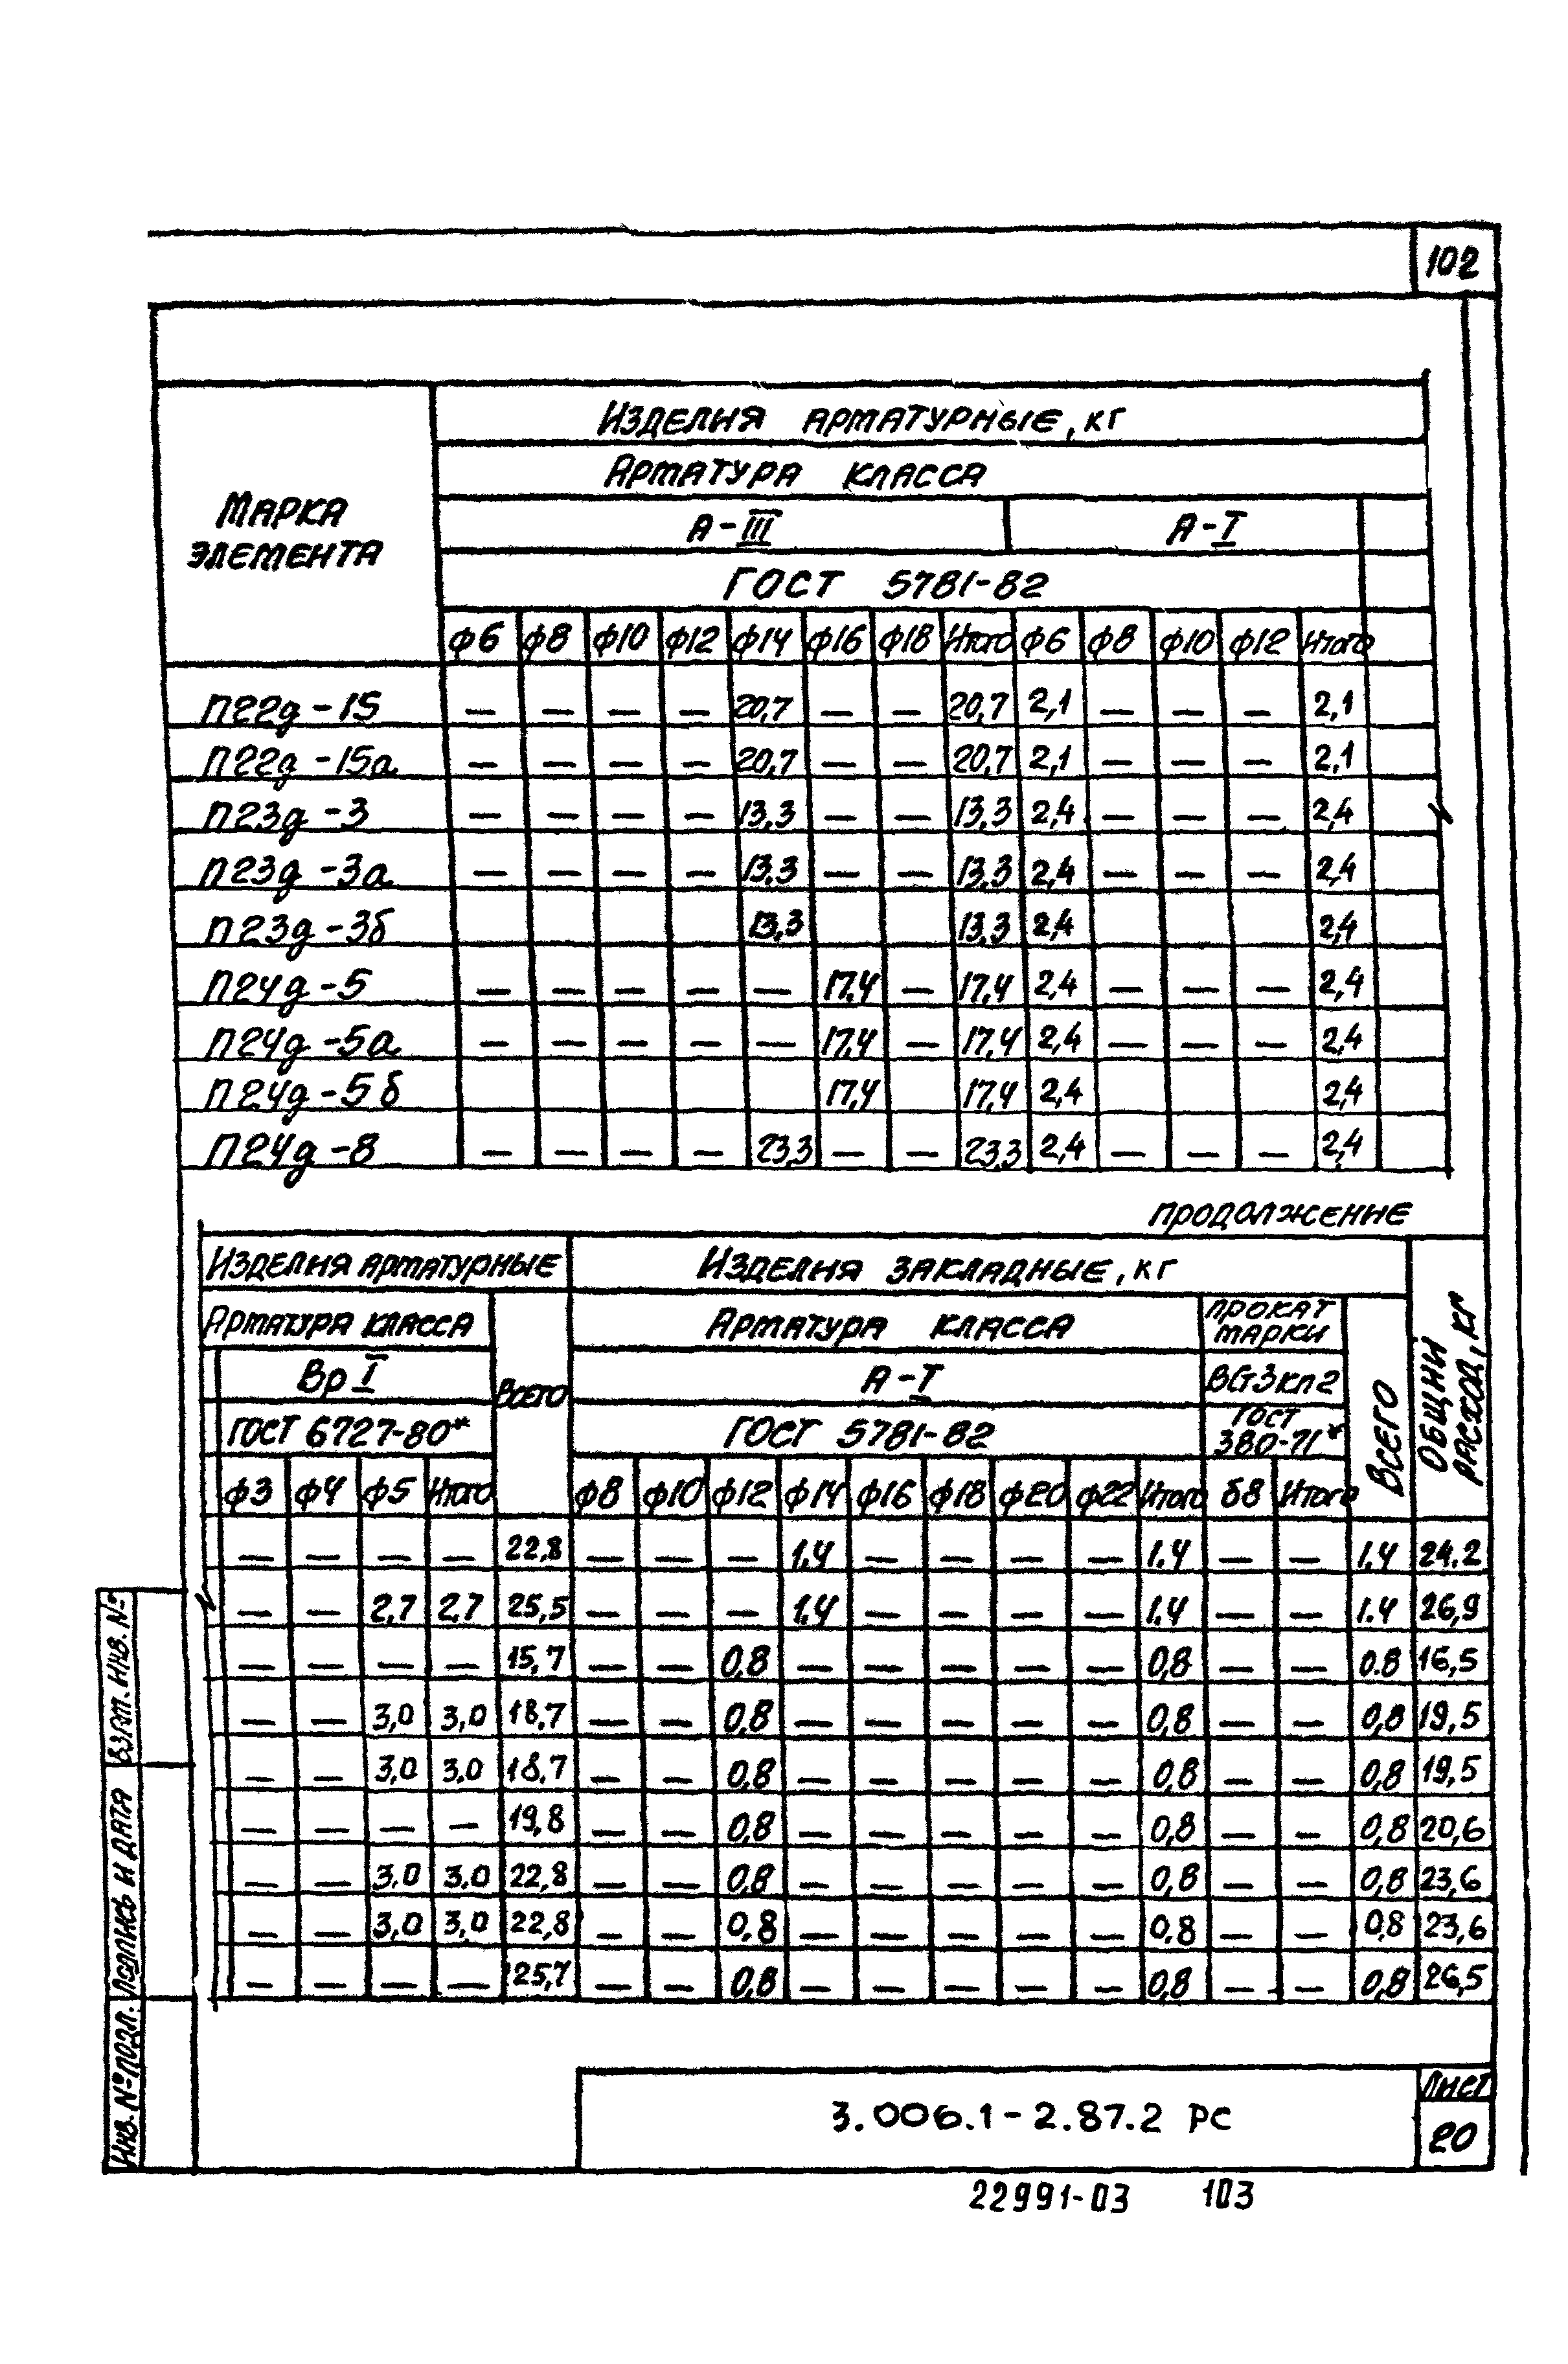 102
Изделия арматурные, кг
Арматура класса
Марка элемента
А-III А-I
ГОСТ 5781-82
ф6 ф8 ф10 ф12 ф14 ф16 ф18 Итого ф6 ф8 ф10 ф12 Итого
П22д-15 — — — — 20,7 — — 20,7 2,1 — — — 2,1
П22д-15а — — — — 20,7 — — 20,7 2,1 — — — 2,1
П23д-3 — — — — 13,3 — — 13,3 2,4 — — — 2,4
П23д-3а — — — — 13,3 — — 13,3 2,4 — — — 2,4
П23д-3б 13,3 13,3 2,4 2,4
П24д-5 — — — — — 17,4 — 17,4 2,4 — — — 2,4
П24д-5а — — — — — 17,4 — 17,4 2,4 — — — 2,4
П24д-5б 17,4 17,4 2,4 2,4
П24д-8 — — — — 23,3 — — 23,3 2,4 — — — 2,4
продолжение
Изделия арматурные Изделия закладные, кг Общий расход, кг
Арматура класса Всего Арматура класса Прокат марки Всего
Вр I А-I ВСт3кп2
ГОСТ 6727-80* ГОСТ 5781-82 ГОСТ 380-71*
ф3 ф4 ф5 Итого ф8 ф10 ф12 ф14 ф16 ф18 ф20 ф22 Итого δ8 Итого
— — — — 22,8 — — — 1.4 — — — — 1.4 — — 1.4 24.2
— — 2,7 2,7 25,5 — — — 1,4 — — — — 1,4 — — 1.4 26,9
— — — — 15,7 — — 0,8 — — — — — 0,8 — — 0.8 16,5
— — 3,0 3,0 18,7 — — 0,8 — — — — — 0,8 — — 0,8 19,5
— — 3,0 3.0 18,7 — — 0,8 — — — — — 0,8 — — 0,8 19,5
— — — — 19,8 — — 0,8 — — — — — 0,8 — — 0,8 20,6
— — 3,0 3,0 22,8 — — 0,8 — — — — — 0,8 — — 0,8 23,6
— — 3,0 3,0 22,8 — — 0,8 — — — — — 0,8 — — 0,8 23,6
— — — — 25,7 — — 0,8 — — — — — 0,8 — — 0,8 26,5
Взам. инв. №
Подпись и дата
Инв. № подл.
3.006.1-2.87.2 РС
Лист
20
22991-03 103